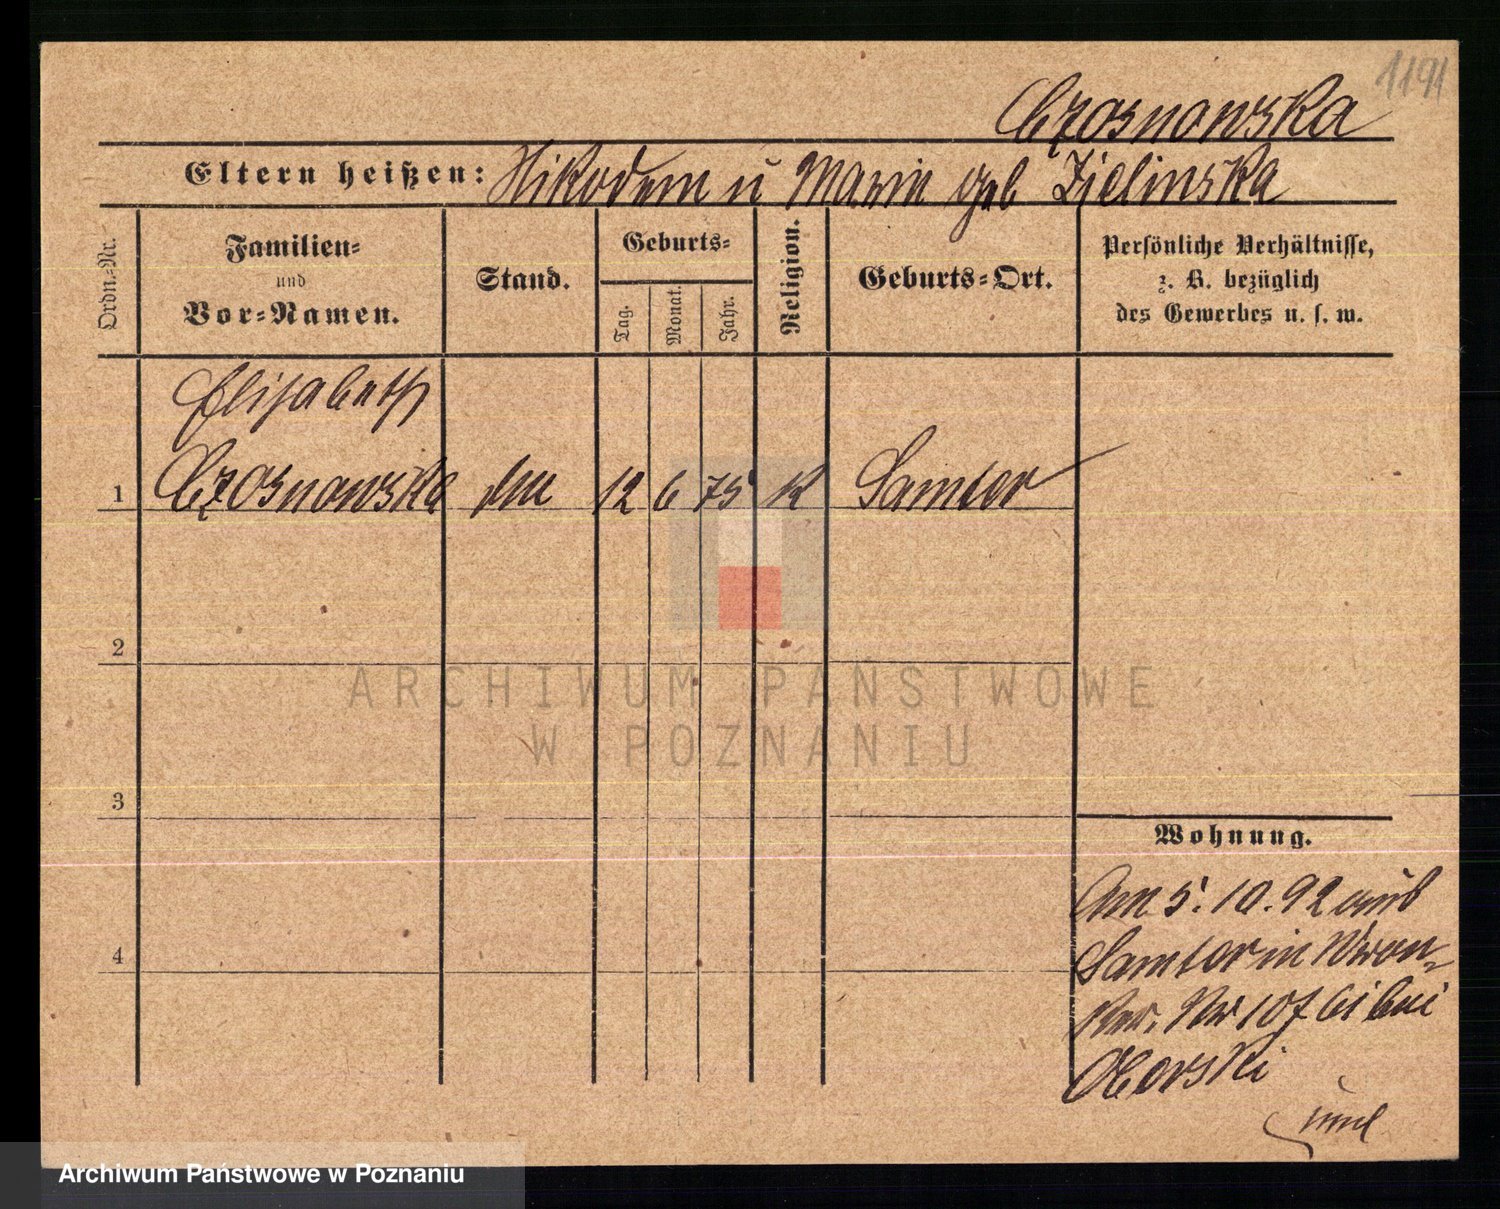 1191
Czosnowska
Eltern heißen: Nikodem u Marie geb Zielinska
Ordn.-Nr.
Familien-
und
Vor-Namen.
Stand.
Geburts-
Tag.
Monat.
Jahr.
Religion.
Geburts-Ort.
Persönliche Verhältnisse,
z. B. bezüglich
des Gewerbes u. s. w.
Elisabeth
1 Czosnowska 12 6 75 K Samter
2
ARCHIWUM PAŃSTWOWE
W POZNANIU
3
Wohnung.
Am 5. 10. 92 aus
4
Samter in Wron-
Nr 107 bei
Oborski
Archiwum Państwowe w Poznaniu